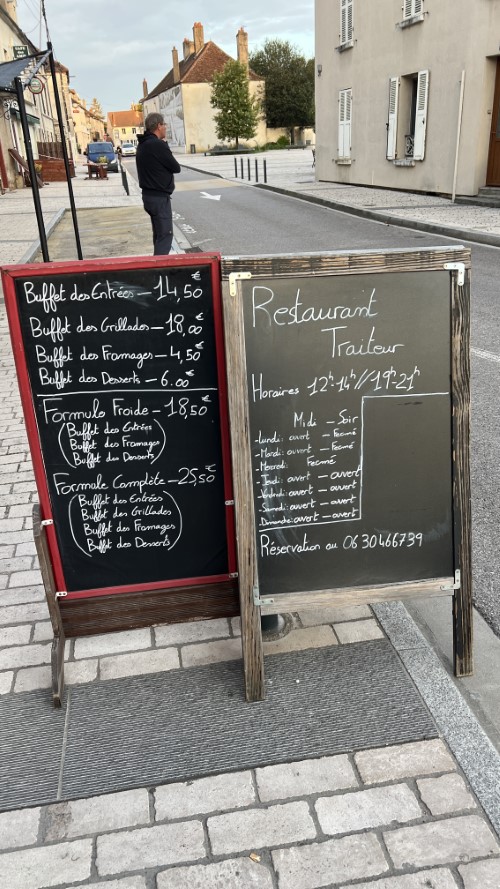 Buffet des Entrées — 14,50 €
Buffet des Grillades — 18,00 €
Buffet des Fromages — 4,50 €
Buffet des Desserts — 6.00 €
Formule Froide — 18,50 €
(Buffet des Entrées
Buffet des Fromages
Buffet des Desserts)
Formule Complète — 25,50 €
(Buffet des Entrées
Buffet des Grillades
Buffet des Fromages
Buffet des Desserts)
Restaurant
Traiteur
Horaires 12h-14h // 19h-21h
Midi — Soir
-Lundi: ouvert — Fermé
-Mardi: ouvert — Fermé
-Mercredi: Fermé
-Jeudi: ouvert — ouvert
-Vendredi: ouvert — ouvert
-Samedi: ouvert — ouvert
-Dimanche: ouvert — ouvert
Réservation au 06 30466739